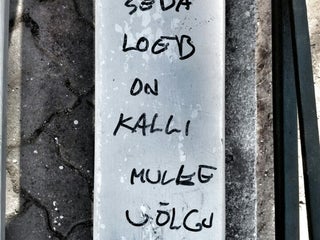 SEDA
LOEB
ON
KALLI
MULLE
VÕLGU